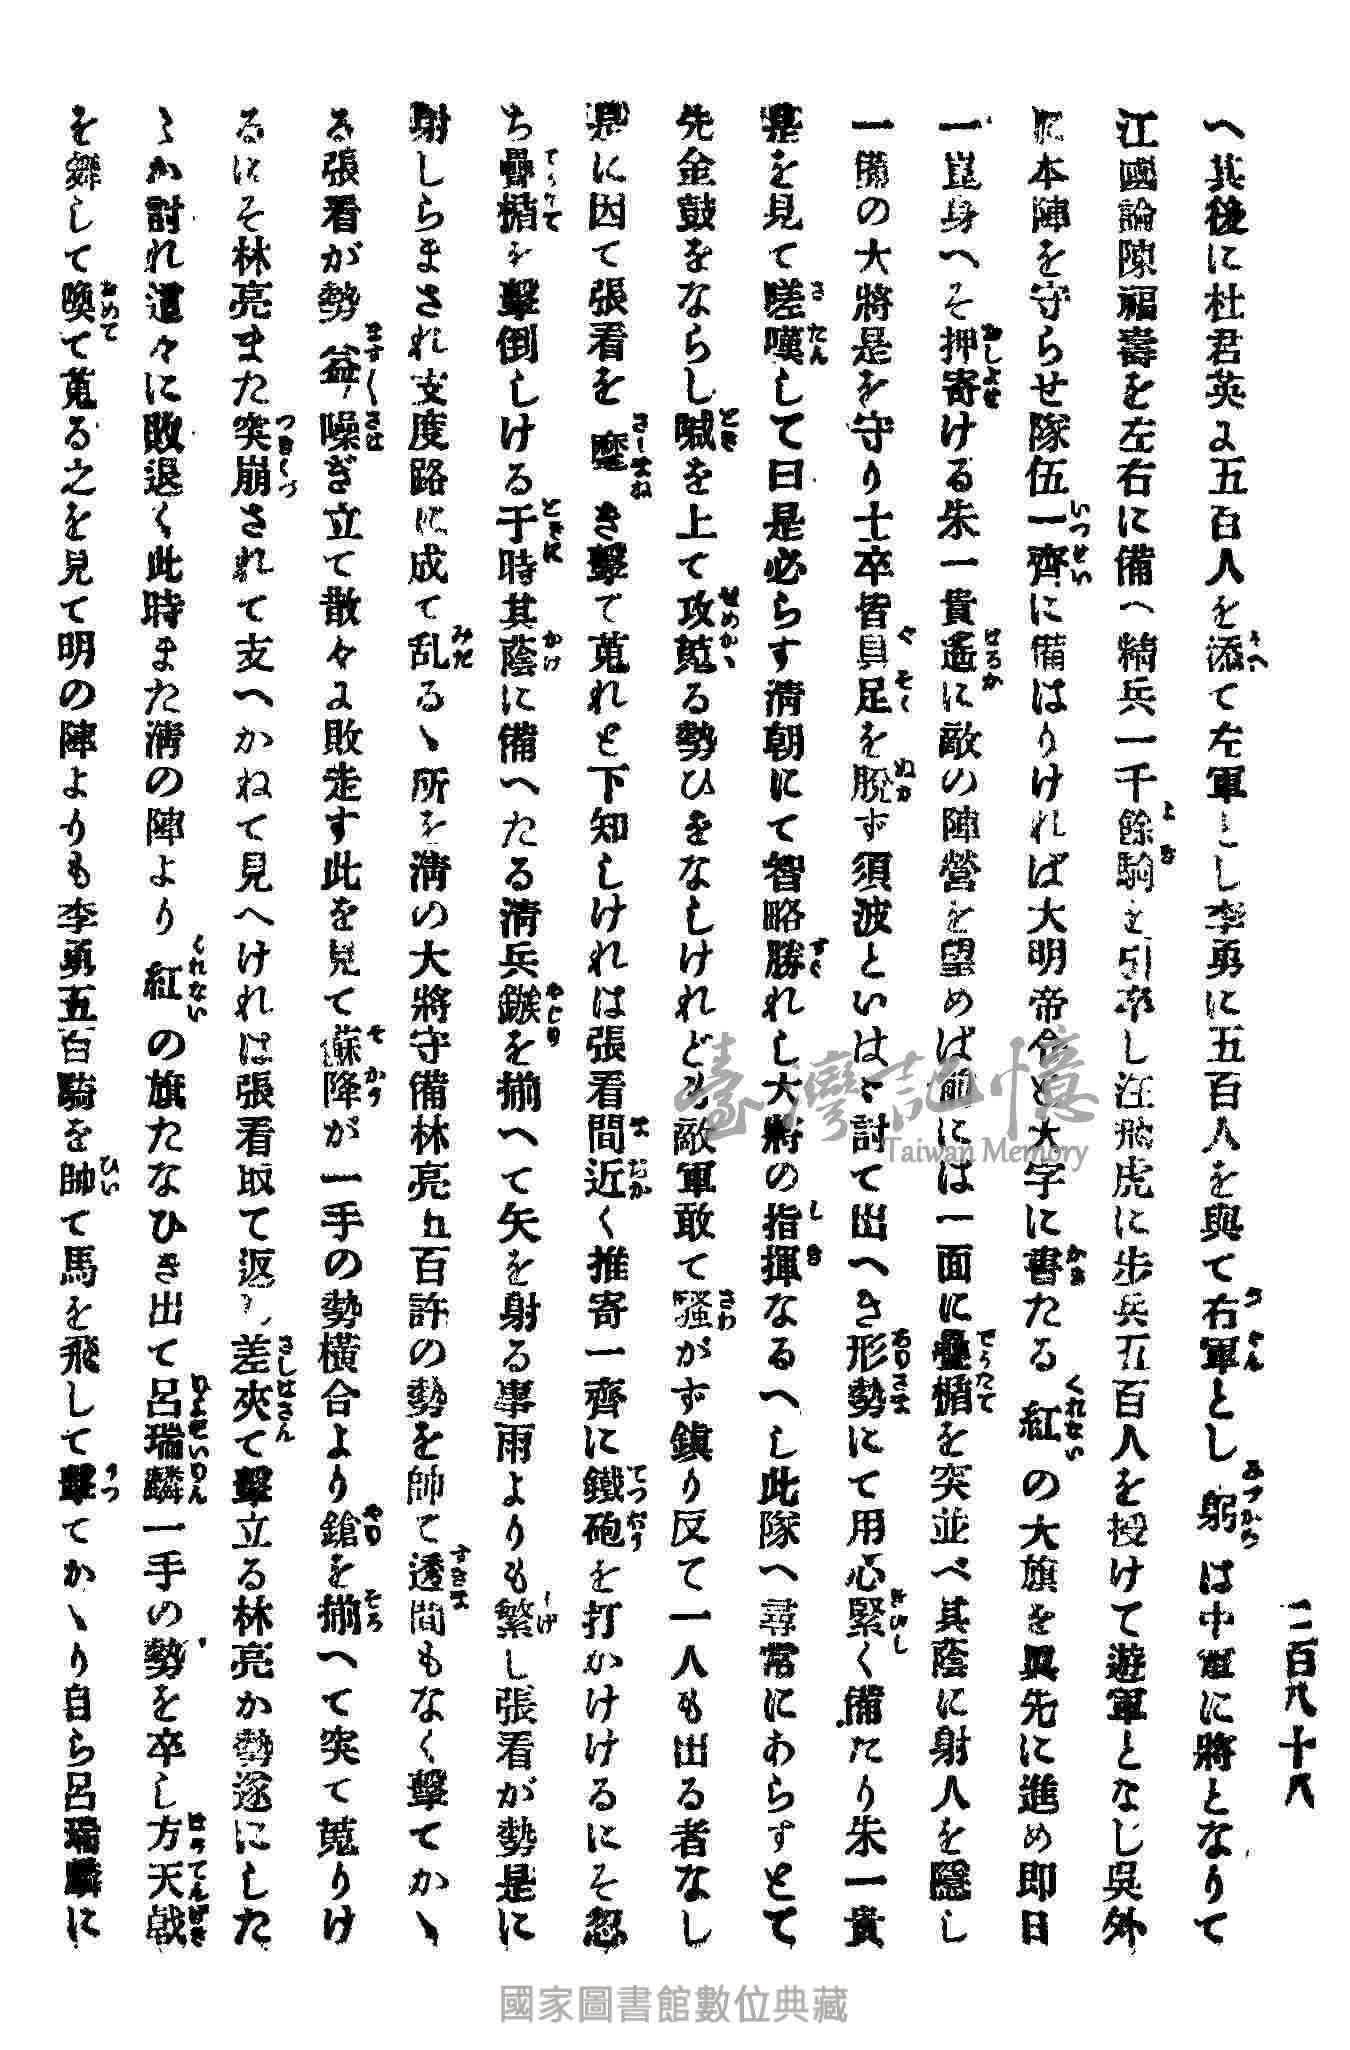 二百八十八
へ其後に杜君英に五百人を添て左軍とし李勇に五百人を與て右軍とし躬は中軍に將となりて
江國論陳福壽を左右に備へ精兵一千餘騎を引率し汪飛虎に歩兵五百人を授けて遊軍となし吳外
に本陣を守らせ隊伍一齊に備はりければ大明帝令と大字に書たる紅の大旗を眞先に進め即日
一崑身へそ押寄ける朱一貴遙に敵の陣營を望めば前には一面に疊楯を突並べ其蔭に射人を隱し
一備の大將是を守り士卒皆具足を脫ず須波といはゞ討て出へき形勢にて用心緊く備たり朱一貴
是を見て嗟嘆して曰是必らす淸朝にて智略勝れし大將の指揮なるへし此隊へ尋常にわらすとて
先金鼓をならし喊を上て攻蒐る勢ひをなしけれども敵軍敢て騷がず鎭り反て一人も出る者なし
是に因て張看を麾き擊て蒐れと下知しけれは張看間近く推寄一齊に鐵砲を打かけけるにそ忽
ち疊楯を擊倒しける于時其蔭に備へたる淸兵鏃を揃へて矢を射る事雨よりも繁し張看が勢是に
射しらまされ支度路に成て乱るゝ所を淸の大將守備林亮五百許の勢を帥て透間もなく擊てかゝ
る張看が勢益噪ぎ立て散々に敗走す此を見て蘇降が一手の勢橫合より鎗を揃へて突て蒐りけ
るにそ林亮また突崩されて支へかねて見へけれは張看取て返し差夾て擊立る林亮か勢遂にした
ゝか討れ這々に敗退く此時また淸の陣より紅の旗たなひき出て呂瑞麟一手の勢を卒し方天戟
を舞して喚て蒐る之を見て明の陣よりも李勇五百騎を帥て馬を飛して擊てかゝり自ら呂瑞麟に
臺灣記憶
Taiwan Memory
國家圖書館數位典藏